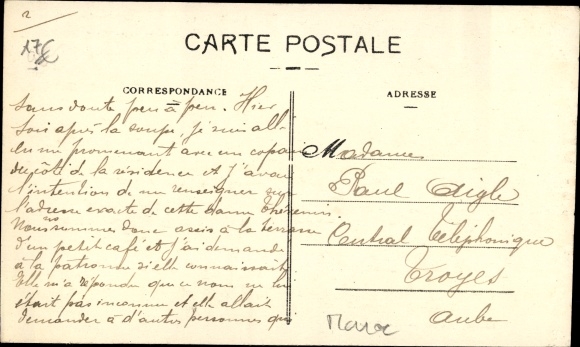 2
17€
CARTE POSTALE
CORRESPONDANCE
sans doute peu à peu. Hier
soir après la soupe, je suis allé
en me promenant avec un copain
du côté de la résidence et j'avais
l'intention de me renseigner sur
l'adresse exacte de cette dame
Nous nous sommes donc assis à la terrasse
d'un petit café et j'ai demandé
à la patronne si elle connaissait.
Elle m'a répondu que ce nom ne lui
était pas inconnu et elle allait
demander à d'autres personnes qui
ADRESSE
Madame
Paul Aigle
Central Téléphonique
Troyes
Aube
Maroc